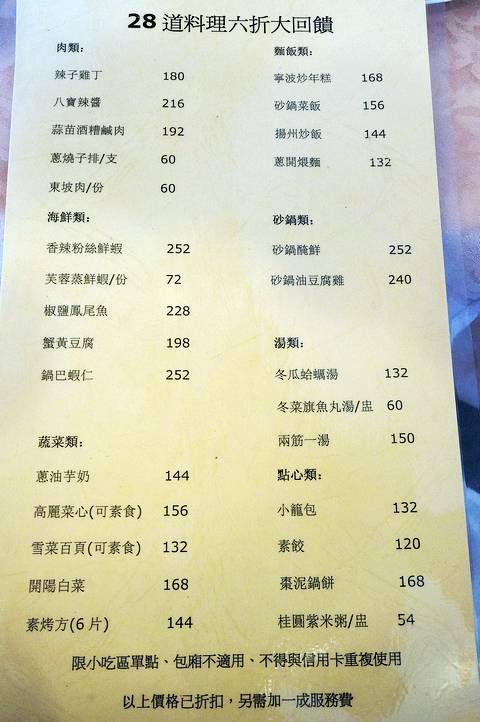 28 道料理六折大回饋
肉類：
辣子雞丁 180
八寶辣醬 216
蒜苗酒糟鹹肉 192
蔥燒子排/支 60
東坡肉/份 60
海鮮類：
香辣粉絲鮮蝦 252
芙蓉蒸鮮蝦/份 72
椒鹽鳳尾魚 228
蟹黃豆腐 198
鍋巴蝦仁 252
蔬菜類：
蔥油芋奶 144
高麗菜心(可素食) 156
雪菜百頁(可素食) 132
開陽白菜 168
素烤方(6 片) 144
麵飯類：
寧波炒年糕 168
砂鍋菜飯 156
揚州炒飯 144
蔥開煨麵 132
砂鍋類：
砂鍋醃鮮 252
砂鍋油豆腐雞 240
湯類：
冬瓜蛤蠣湯 132
冬菜旗魚丸湯/盅 60
兩筋一湯 150
點心類：
小籠包 132
素餃 120
棗泥鍋餅 168
桂圓紫米粥/盅 54
限小吃區單點、包廂不適用、不得與信用卡重複使用
以上價格已折扣，另需加一成服務費